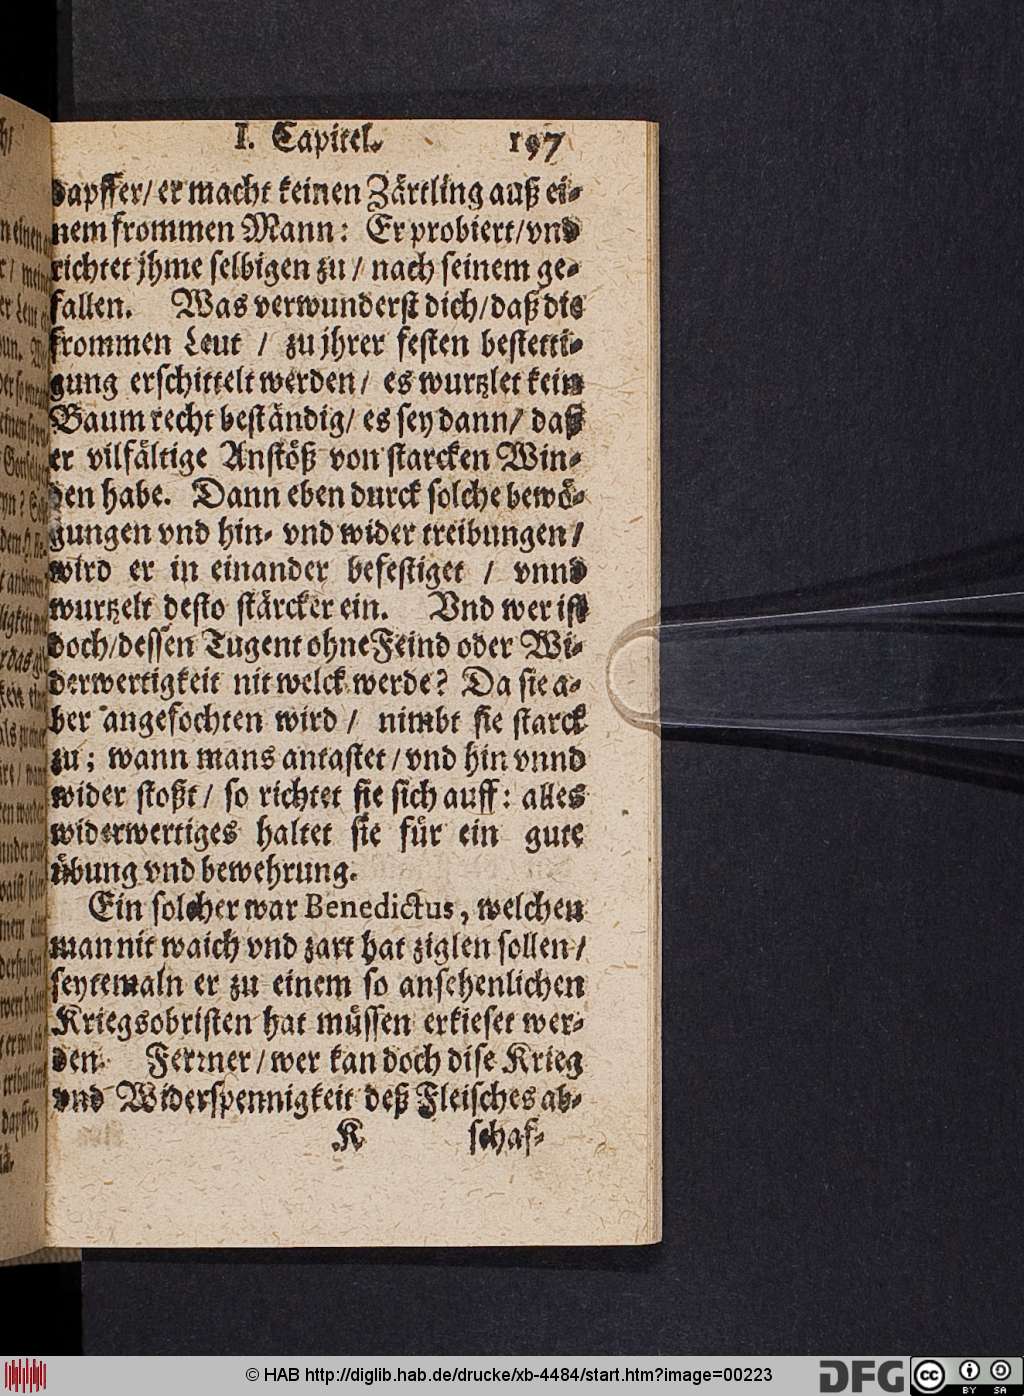 I. Capitel. 197
dapffer/ er macht keinen Zärtling auß ei-
nem frommen Mann: Er probiert/ vnd
richtet jhme selbigen zu / nach seinem ge-
fallen. Was verwunderst dich/ daß die
frommen Leut / zu jhrer festen bestetti-
gung erschittelt werden/ es wurtzlet kein
Baum recht beständig/ es sey dann/ daß
er vilfältige Anstöß von starcken Win-
den habe. Dann eben durck solche bewö-
gungen vnd hin- vnd wider treibungen/
wird er in einander befestiget / vnnd
wurtzelt desto stärcker ein. Vnd wer ist
doch/ dessen Tugent ohne Feind oder Wi-
derwertigkeit nit welck werde? Da sie a-
ber angefochten wird / nimbt sie starck
zu; wann mans antastet / vnd hin vnnd
wider stoßt / so richtet sie sich auff: alles
widerwertiges haltet sie für ein gute
übung vnd bewehrung.
Ein solcher war Benedictus, welchen
man nit waich vnd zart hat ziglen sollen /
seytemaln er zu einem so ansehenlichen
Kriegsobristen hat müssen erkieset wer-
den. Ferrner / wer kan doch dise Krieg
vnd Widerspennigkeit deß Fleisches ab-
K schaf-
© HAB http://diglib.hab.de/drucke/xb-4484/start.htm?image=00223
DFG
cc BY SA